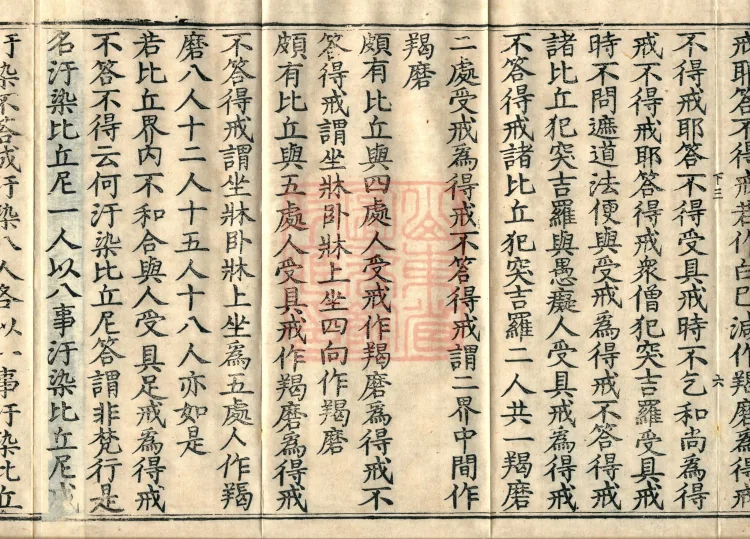 戒耶答不得戒若作白已減作羯磨爲得戒
下三
六
不得戒耶答不得受具戒時不乞和尚爲得
戒不得戒耶答得戒衆僧犯突吉羅受具戒
時不問遮道法便與受戒爲得戒不答得戒
諸比丘犯突吉羅與愚癡人受具戒爲得戒
不答得戒諸比丘犯突吉羅二人共一羯磨
二處受戒爲得戒不答得戒謂二界中間作
羯磨
頗有比丘與四處人受戒作羯磨爲得戒不
答得戒謂坐牀卧牀上坐四向作羯磨
頗有比丘與五處人受具戒作羯磨爲得戒
不答得戒謂坐牀卧牀上坐爲五處人作羯
磨八人十二人十五人十八人亦如是
若比丘界内不和合與人受具足戒爲得戒
不答不得云何汙染比丘尼答謂非梵行是
名汙染比丘尼一人以八事汙染比丘尼戒
汙染不答或汙染八人各以八事汙染比丘